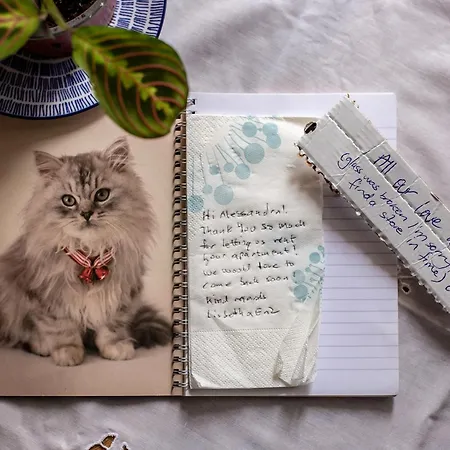 Hi Alessandra!
Thank you so much
for letting us rent
your apartment!
we would love to
come back soon
kind regards
Lisbeth &
All our love
(glass was broken I'm sorry
find a store (in time)